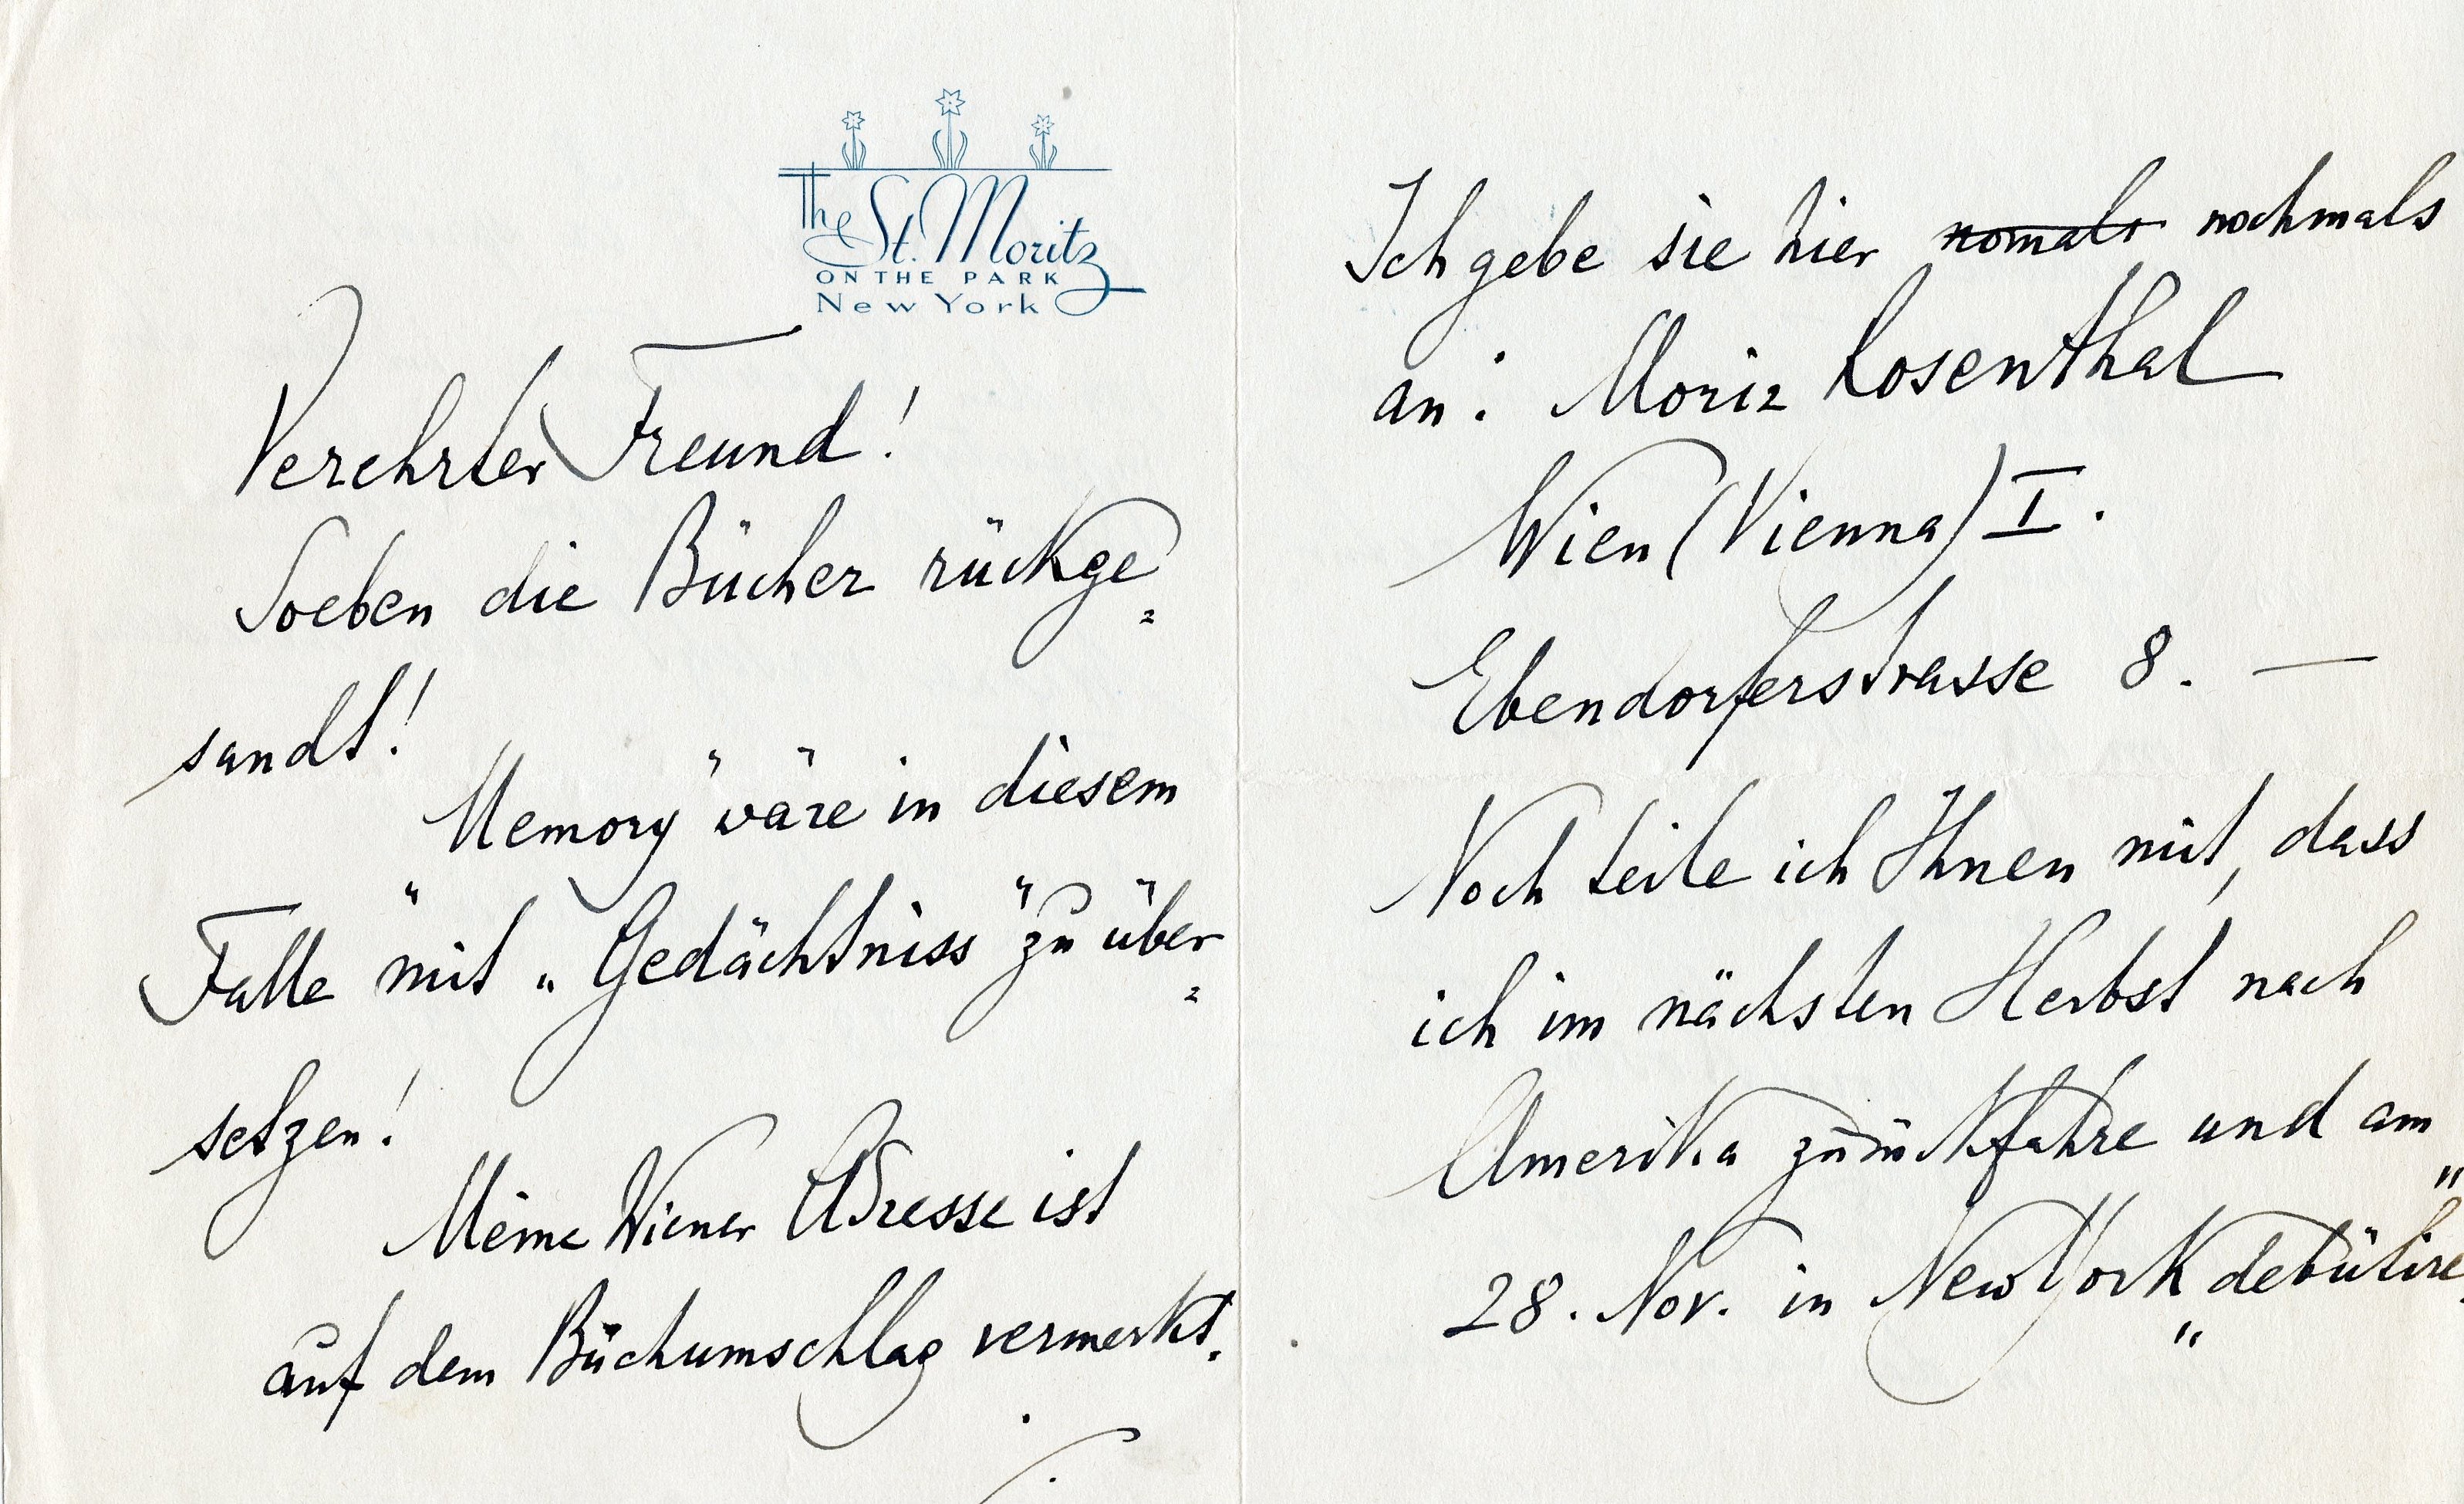 The St. Moritz
ON THE PARK
New York
Verehrter Freund!
Soeben die Bücher rückge=
sandt!
"Memory" wäre in diesem
Falle mit „Gedächtniss" zu über=
setzen!
Meine Wiener Adresse ist
auf dem Buchumschlag vermerkt.
Ich gebe sie hier nomals nochmals
an: Moriz Rosenthal
Wien (Vienna) I.
Ebendorferstrasse 8. —
Noch teile ich Ihnen mit, dass
ich im nächsten Herbst nach
Amerika zurückfahre und am
28. Nov. in New York "debütire